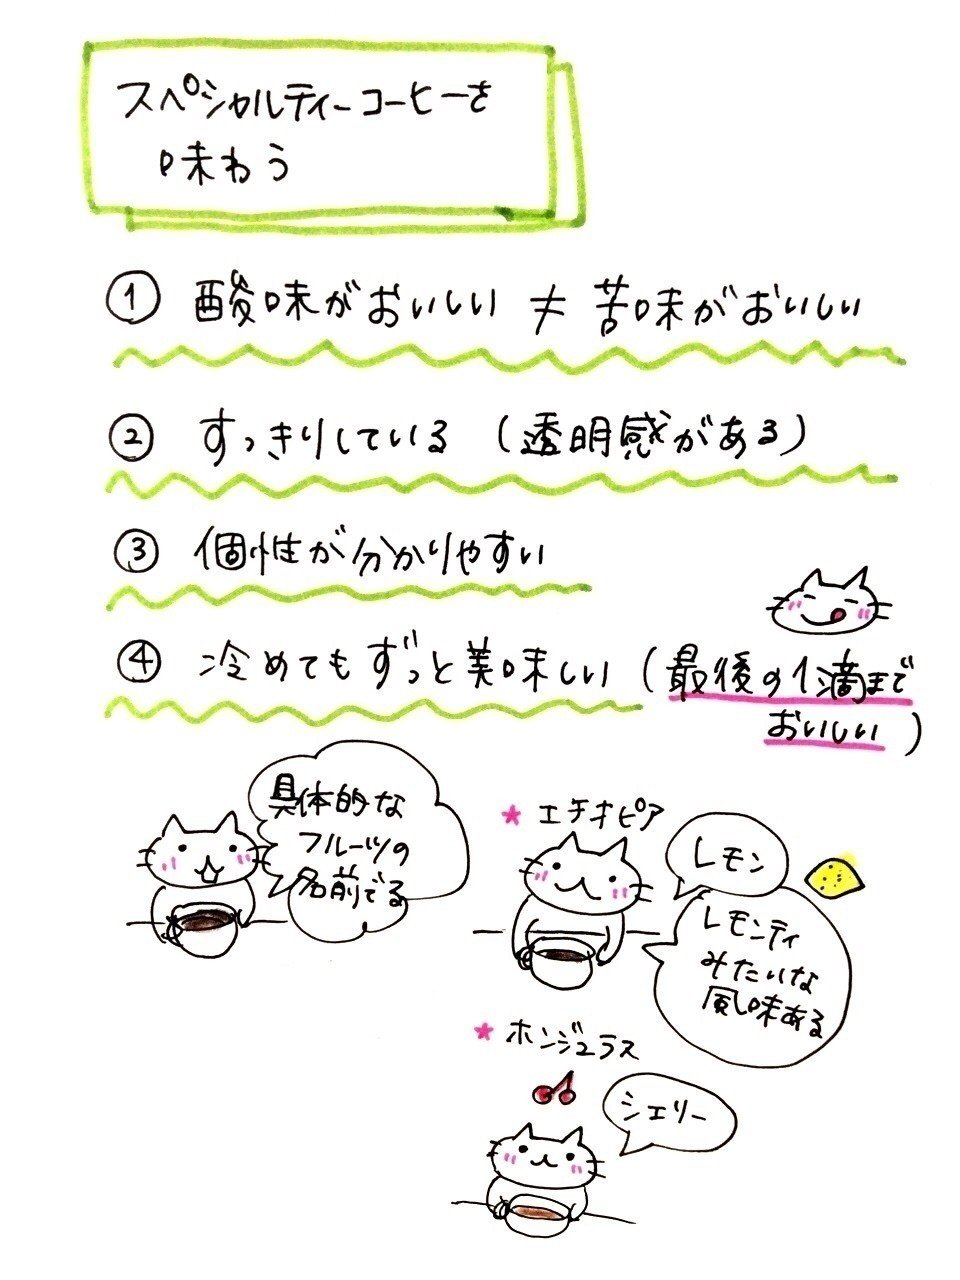 スペシャルティーコーヒーを
味わう
① 酸味がおいしい ≠ 苦味がおいしい
② すっきりしている (透明感がある)
③ 個性が分かりやすい
④ 冷めてもずっと美味しい (最後の1滴まで
おいしい)
具体的な
フルーツの
名前でる
★ エチオピア
レモン
レモンティ
みたいな
風味ある
★ ホンジュラス
シェリー